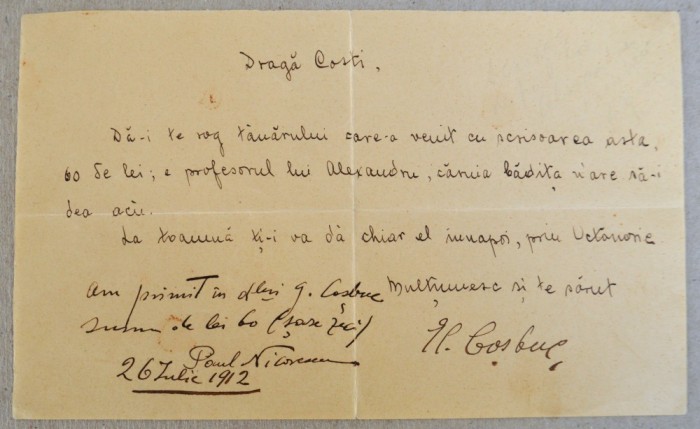 Dragă Costi,
Dă-i te rog tânărului care-a venit cu scrisoarea asta,
60 de lei; e profesorul lui Alexandru, căruia bădița n'are să-i
dea acu.
La toamnă ți-i va dà chiar el innapoi, prin Octomvrie
Mulțumesc și te sărut
El. Coșbuc
Am primit în dlui G. Coșbuc
suma de lei 60 (șase zeci)
Paul Nicorescu
26 Iulie 1912